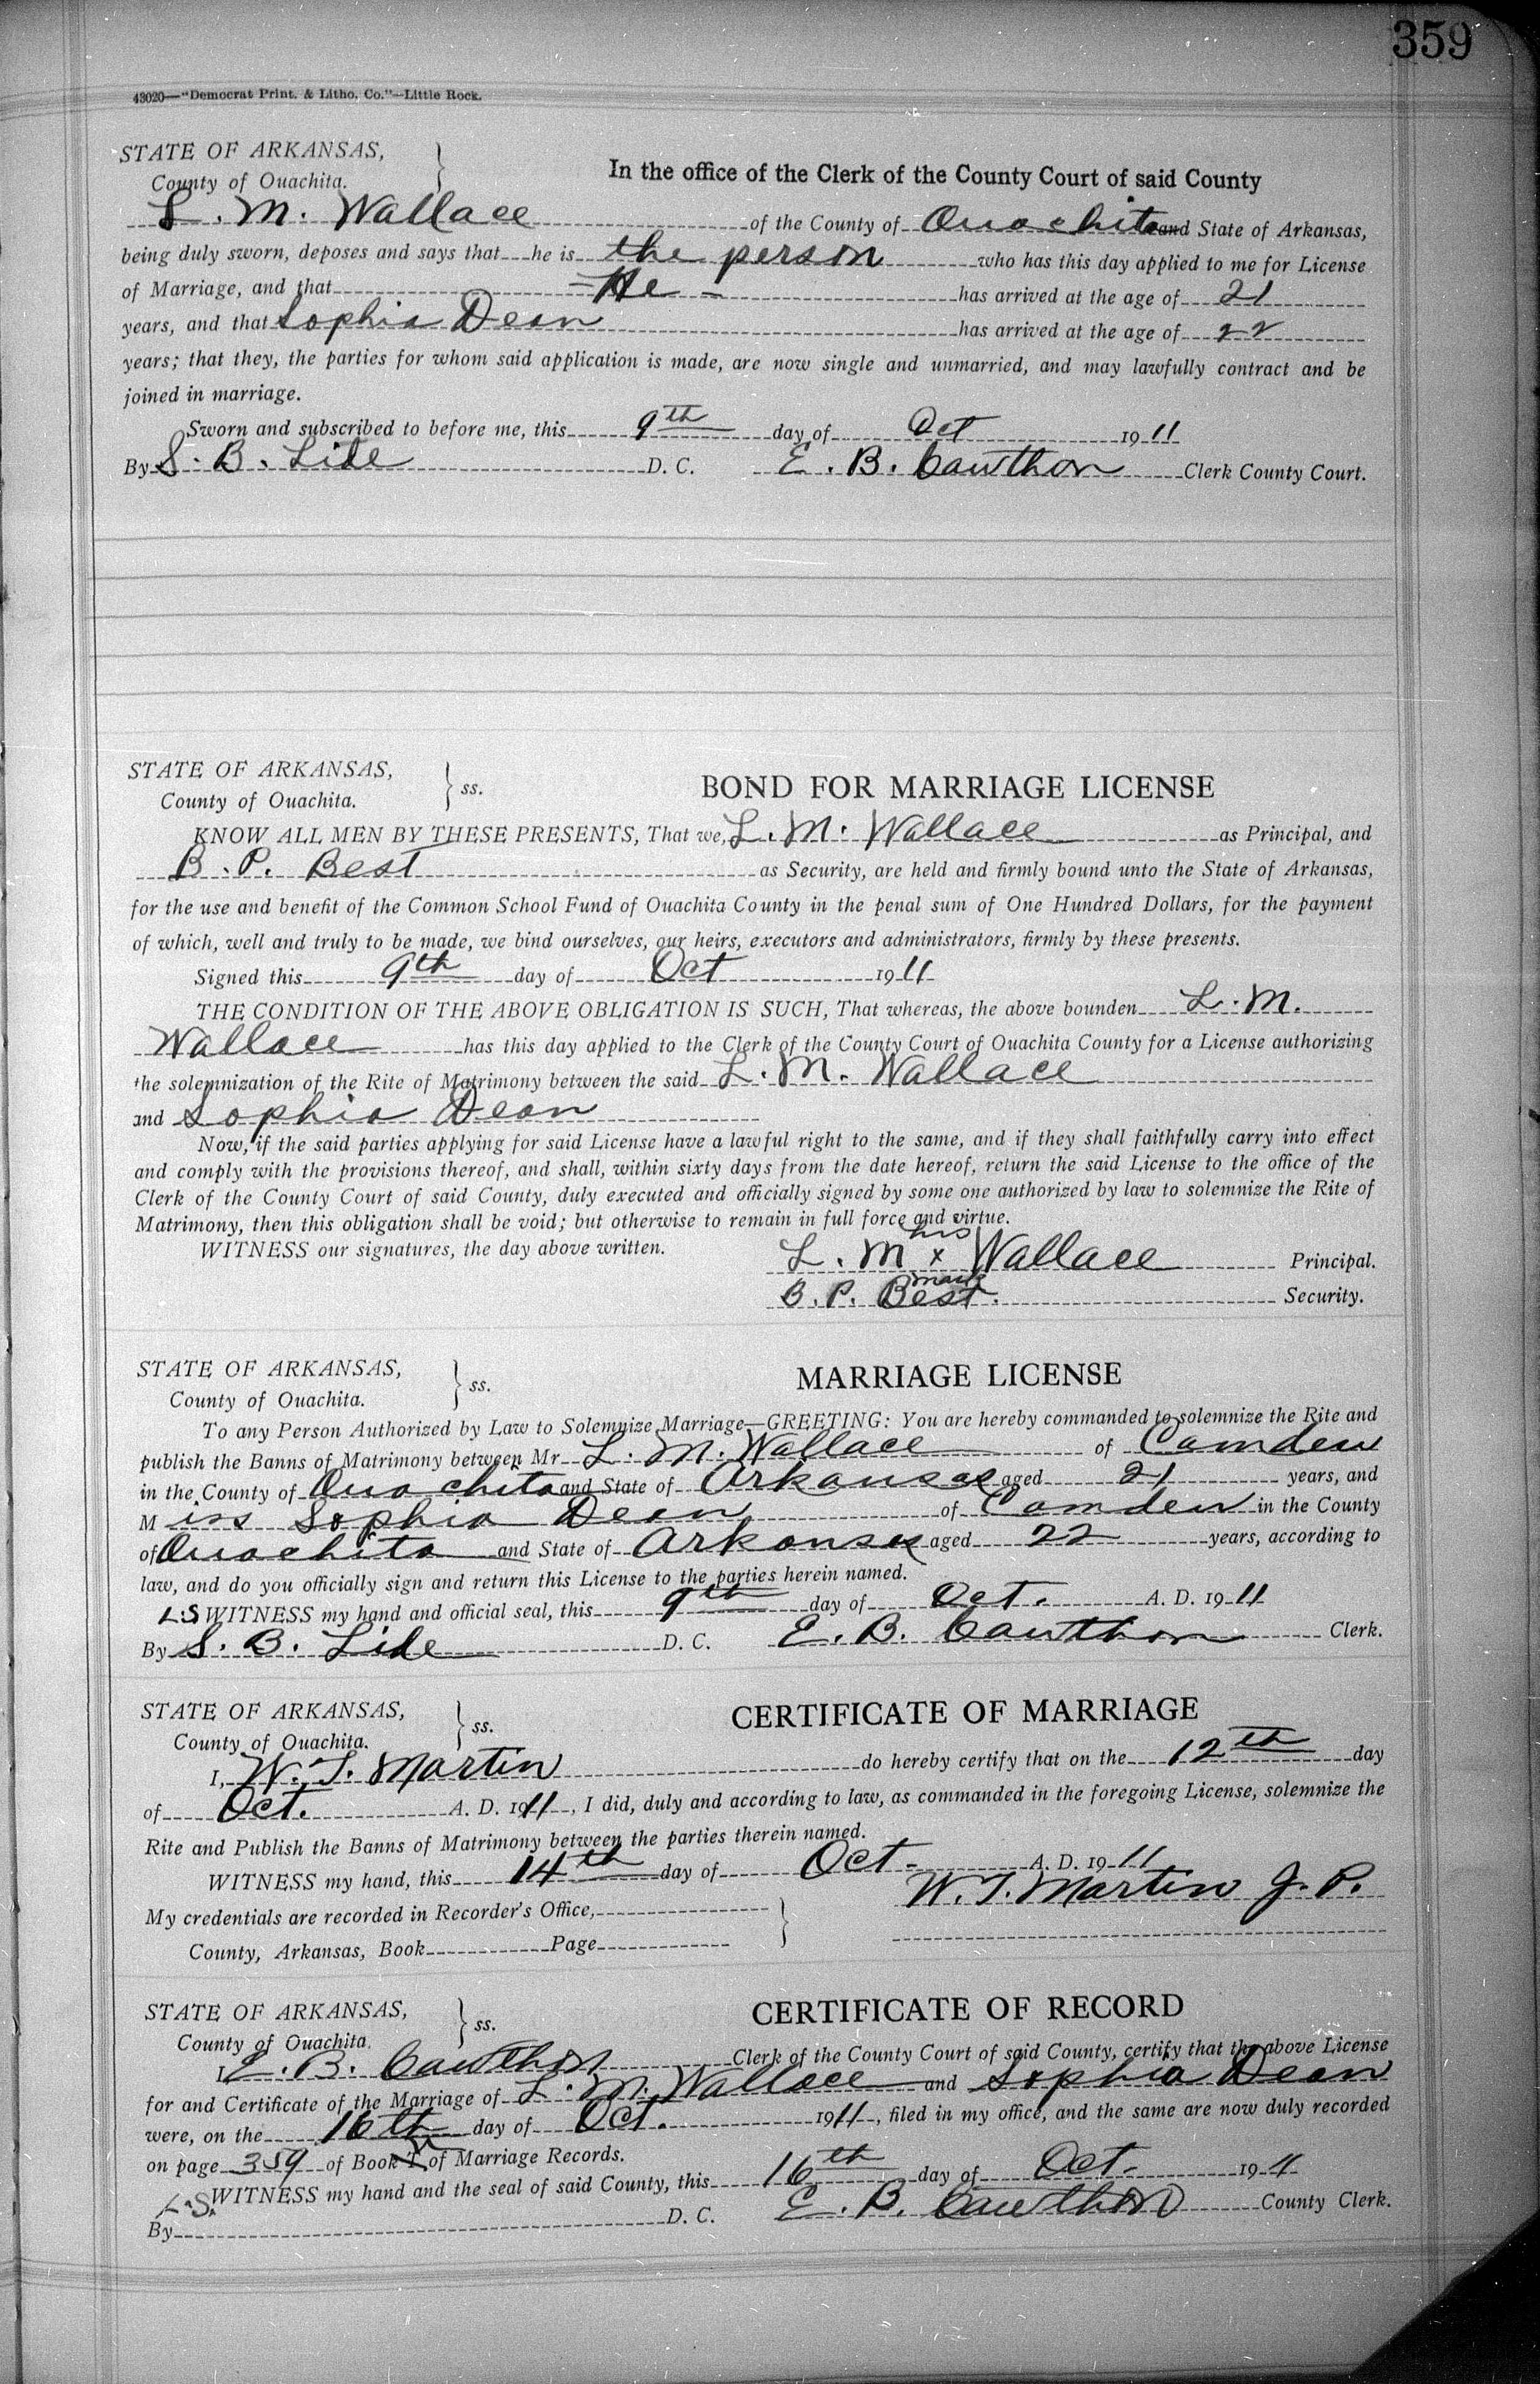 359
43020—"Democrat Print. & Litho. Co."—Little Rock.
STATE OF ARKANSAS,
County of Ouachita.
In the office of the Clerk of the County Court of said County
L. M. Wallace of the County of Ouachita and State of Arkansas,
being duly sworn, deposes and says that he is the person who has this day applied to me for License
of Marriage, and that - He - has arrived at the age of 21
years, and that Sophia Dean has arrived at the age of 22
years; that they, the parties for whom said application is made, are now single and unmarried, and may lawfully contract and be
joined in marriage.
Sworn and subscribed to before me, this 9th day of Oct 1911
By S. B. Lide D. C. E. B. Cawthon Clerk County Court.
STATE OF ARKANSAS,
County of Ouachita. } ss.
BOND FOR MARRIAGE LICENSE
KNOW ALL MEN BY THESE PRESENTS, That we, L. M. Wallace as Principal, and
B. P. Best as Security, are held and firmly bound unto the State of Arkansas,
for the use and benefit of the Common School Fund of Ouachita County in the penal sum of One Hundred Dollars, for the payment
of which, well and truly to be made, we bind ourselves, our heirs, executors and administrators, firmly by these presents.
Signed this 9th day of Oct 1911
THE CONDITION OF THE ABOVE OBLIGATION IS SUCH, That whereas, the above bounden L. M.
Wallace has this day applied to the Clerk of the County Court of Ouachita County for a License authorizing
the solemnization of the Rite of Matrimony between the said L. M. Wallace
and Sophia Dean
Now, if the said parties applying for said License have a lawful right to the same, and if they shall faithfully carry into effect
and comply with the provisions thereof, and shall, within sixty days from the date hereof, return the said License to the office of the
Clerk of the County Court of said County, duly executed and officially signed by some one authorized by law to solemnize the Rite of
Matrimony, then this obligation shall be void; but otherwise to remain in full force and virtue.
WITNESS our signatures, the day above written.
his
L. M x Wallace Principal.
mark
B. P. Best. Security.
STATE OF ARKANSAS,
County of Ouachita. } ss.
MARRIAGE LICENSE
To any Person Authorized by Law to Solemnize Marriage—GREETING: You are hereby commanded to solemnize the Rite and
publish the Banns of Matrimony between Mr L. M. Wallace of Camden
in the County of Ouachita and State of Arkansas aged 21 years, and
Miss Sophia Dean of Camden in the County
of Ouachita and State of Arkansas aged 22 years, according to
law, and do you officially sign and return this License to the parties herein named.
L.S WITNESS my hand and official seal, this 9th day of Oct. A. D. 1911
By S. B. Lide D. C. E. B. Cawthon Clerk.
STATE OF ARKANSAS,
County of Ouachita. } ss.
CERTIFICATE OF MARRIAGE
I, W. T. Martin do hereby certify that on the 12th day
of Oct. A. D. 1911, I did, duly and according to law, as commanded in the foregoing License, solemnize the
Rite and Publish the Banns of Matrimony between the parties therein named.
WITNESS my hand, this 14th day of Oct. A. D. 1911
W. T. Martin J. P.
My credentials are recorded in Recorder's Office,
County, Arkansas, Book Page
STATE OF ARKANSAS,
County of Ouachita. } ss.
CERTIFICATE OF RECORD
I E. B. Cawthon Clerk of the County Court of said County, certify that the above License
for and Certificate of the Marriage of L. M. Wallace and Sophia Dean
were, on the 16th day of Oct. 1911, filed in my office, and the same are now duly recorded
on page 359 of Book of Marriage Records.
L.S. WITNESS my hand and the seal of said County, this 16th day of Oct. 1911
By D. C. E. B. Cawthon County Clerk.